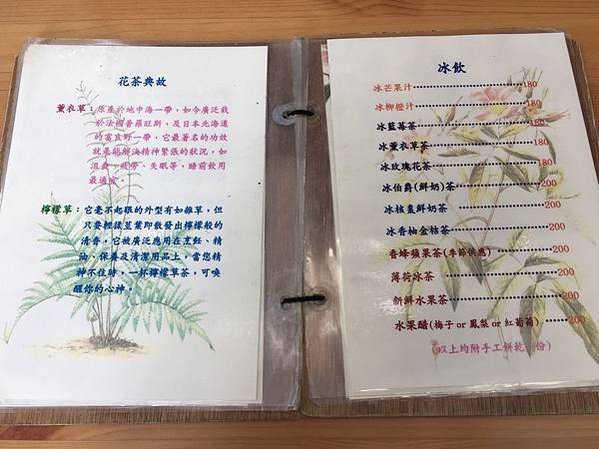 花茶典故
薰衣草：原產於地中海一帶，如今廣泛栽
於法國普羅旺斯，及日本北海道
的富良野一帶，它最著名的功效
就是能解決精神緊張的狀況，如
沮喪、疲勞、失眠等，睡前飲用
最適宜。
檸檬草：它毫不起眼的外型有如雜草，但
只要輕揉莖葉即散發出檸檬般的
清香，它被廣泛應用在烹飪、精
油、保養及清潔用品上，當您精
神不佳時，一杯檸檬草茶，可喚
醒你的心神。
冰飲
冰芒果汁 180
冰柳橙汁 180
冰藍莓茶 180
冰薰衣草茶 180
冰玫瑰花茶 180
冰伯爵(鮮奶)茶 200
冰核棗鮮奶茶 200
冰香柚金桔茶 200
香蜂蘋果茶(季節供應) 200
薄荷冰茶 200
新鮮水果茶 200
水果醋(梅子or鳳梨or紅葡萄) 200
(以上均附手工餅乾一份)